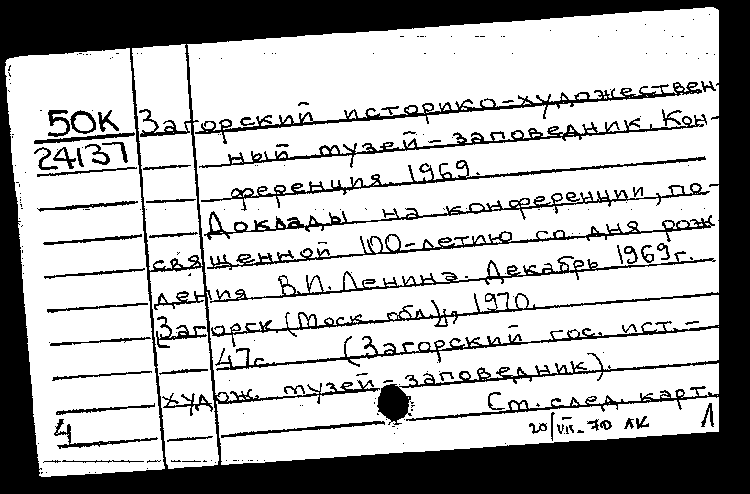 50К Загорский историко-художествен-
24137 ный музей-заповедник. Кон-
ференция. 1969.
Доклады на конференции, по-
священной 100-летию со дня рож
дения В.И. Ленина. Декабрь 1969г.
Загорск (Моск. обл.), 1970.
47с. (Загорский гос. ист.-
худож. музей-заповедник).
4 См. след. карт.
20/VII-70 АК 1